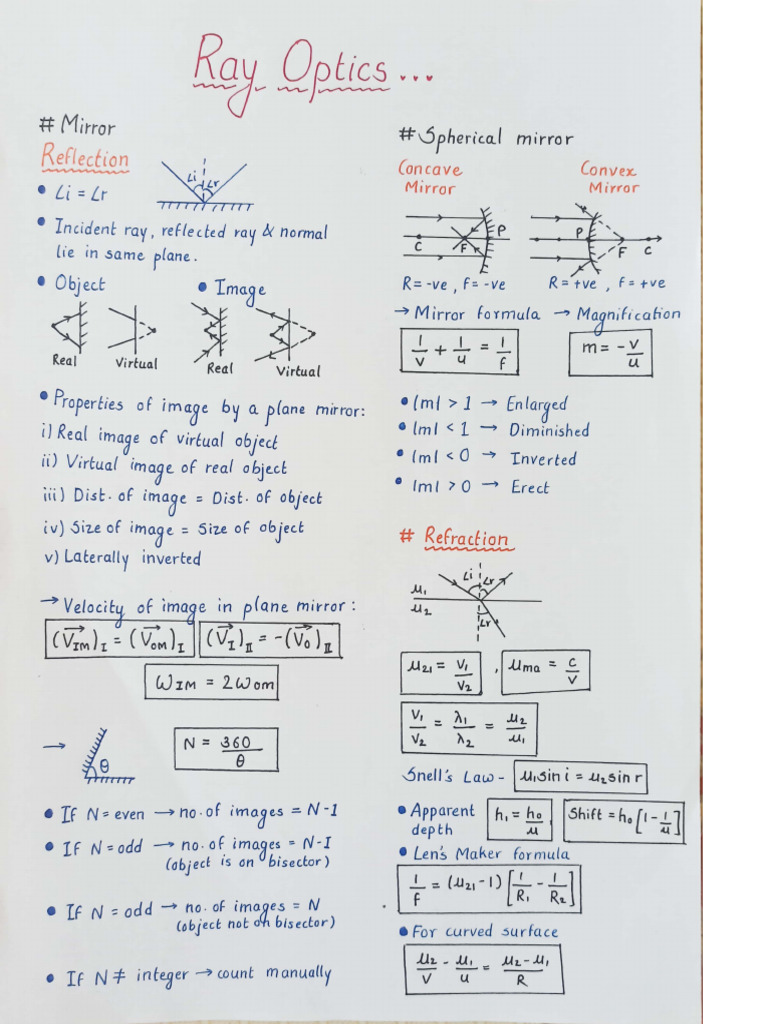 Ray Optics...
# Mirror
Reflection
Li Lr
• ∠i = ∠r
• Incident ray, reflected ray & normal
lie in same plane.
• Object • Image
Real Virtual Real Virtual
• Properties of image by a plane mirror:
i) Real image of virtual object
ii) Virtual image of real object
iii) Dist. of image = Dist. of object
iv) Size of image = Size of object
v) Laterally inverted
→ Velocity of image in plane mirror:
(V⃗IM)I = (V⃗OM)I (V⃗I)II = -(V⃗O)II
ωIM = 2ωOM
→ θ N = 360/θ
• If N = even → no. of images = N-1
• If N = odd → no. of images = N-1
(object is on bisector)
• If N = odd → no. of images = N
(object not on bisector)
• If N ≠ integer → count manually
# Spherical mirror
Concave Convex
Mirror Mirror
C F P P F C
R = -ve, f = -ve R = +ve, f = +ve
→ Mirror formula → Magnification
1/v + 1/u = 1/f m = -v/u
• |m| > 1 → Enlarged
• |m| < 1 → Diminished
• |m| < 0 → Inverted
• |m| > 0 → Erect
# Refraction
∠i ∠r
μ1
μ2
∠r
μ21 = V1/V2, μma = c/v
V1/V2 = λ1/λ2 = μ2/μ1
Snell's Law - μ1 sin i = μ2 sin r
• Apparent depth h1 = h0/μ Shift = h0[1 - 1/μ]
• Len's Maker formula
1/f = (μ21 - 1) [1/R1 - 1/R2]
• For curved surface
μ2/V - μ1/u = μ2 - μ1/R